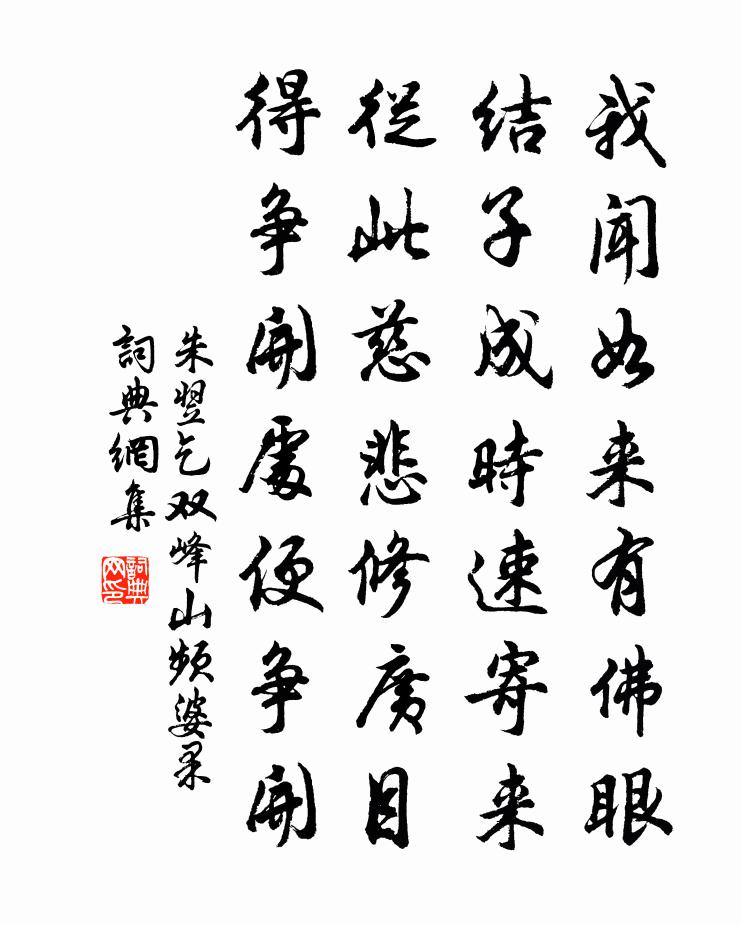 我聞如来有佛眼
結子成時速寄来
從此慈悲修廣目
得争開處便争開
朱翌乞双峰山频婆果
詞典網集
詞典
网印